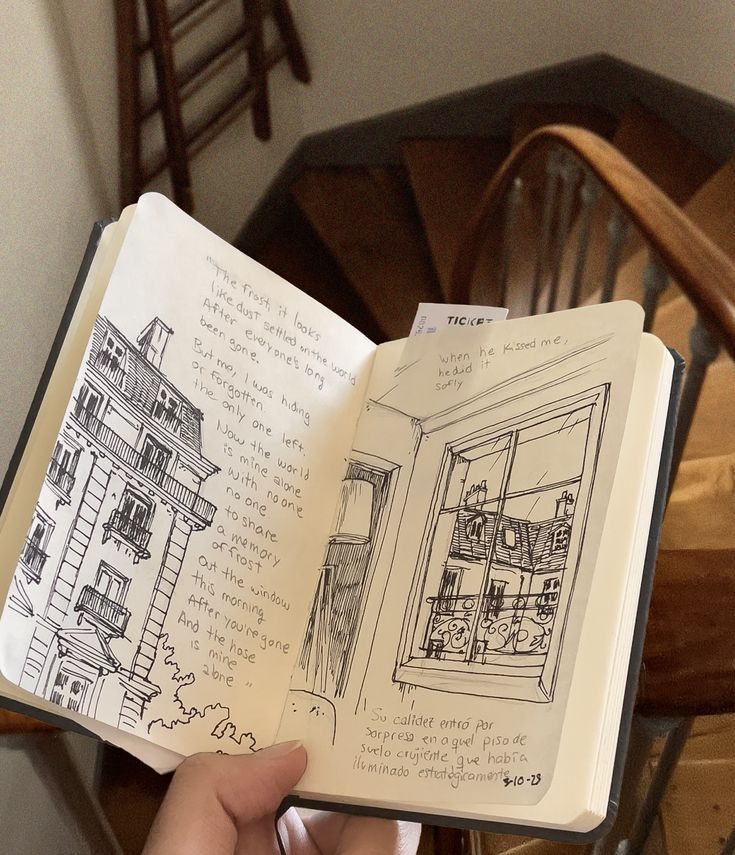 "The frost, it looks
like dust settled on the world
After everyone's long
been gone.
But me, I was hiding
or forgotten
the only one left.
Now the world
is mine alone
With no one
no one
to share
a memory
of frost
out the window
this morning
After you're gone
And the hose
is mine
alone "
TICKET
when he kissed me,
he did it
sofly
Su calidez entró por
sorpresa en aquel piso de
suelo crujiente que había
iluminado estratégicamente
3-10-23